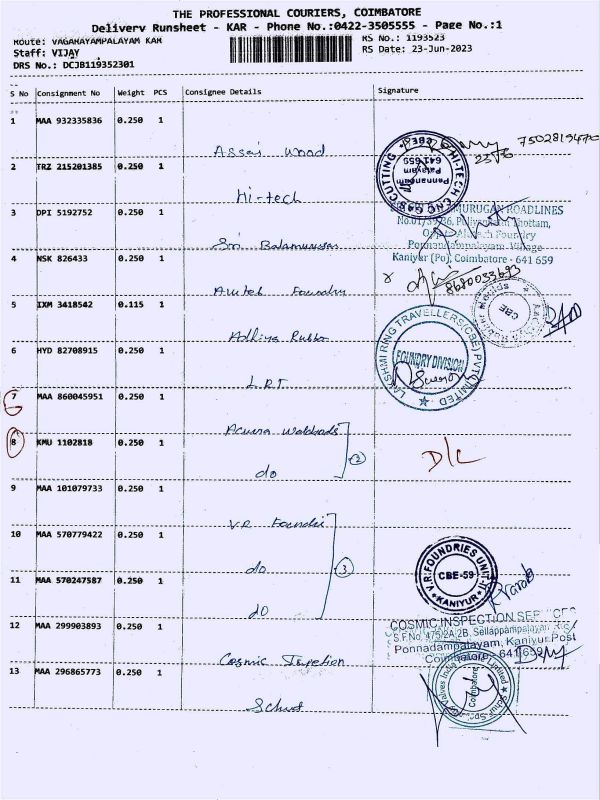 THE PROFESSIONAL COURIERS, COIMBATORE
Delivery Runsheet - KAR - Phone No.:0422-3505555 - Page No.:1
Route: VAGARAYAMPALAYAM KAR
RS No.: 1193523
Staff: VIJAY
RS Date: 23-Jun-2023
DRS No.: DCJB119352301
S No Consignment No Weight PCS Consignee Details Signature
1 MAA 932335836 0.250 1
Assai Wood
7502819470
2 TRZ 215201385 0.250 1
Hi-tech
HI-TECH CNC GAS CUTTING
Pannandam Palayam
641 659
CBE
3 DPI 5192752 0.250 1
Sri Balamurugan
MURUGAN ROADLINES
Thottam,
Foundry
Ponnandampalayam, Village
Kaniyur (Po), Coimbatore - 641 659
4 NSK 826433 0.250 1
Amtek Foundry
8680033693
5 IXM 3418542 0.115 1
Adhiya Rubber
CBE
6 HYD 82708915 0.250 1
L.R.T
LAKSHMI RING TRAVELLERS(CBE) PVT LIMITED
FOUNDRY DIVISION
7 MAA 860045951 0.250 1
Acuura
8 KMU 1102818 0.250 1
do
2
D/C
9 MAA 101079733 0.250 1
V.R Foundri
10 MAA 570779422 0.250 1
do
3
11 MAA 570247587 0.250 1
do
V.R.FOUNDRIES UNIT-II
CBE-59
KANIYUR
12 MAA 299903893 0.250 1
Cosmic Inspection
COSMIC INSPECTION SERVICES
S.F.No. 475/2A,2B, Sellappampalayam
Ponnadampalayam, Kaniyur Post
Coimbatore - 641 659
13 MAA 296865773 0.250 1
Schuf
Coimbatore